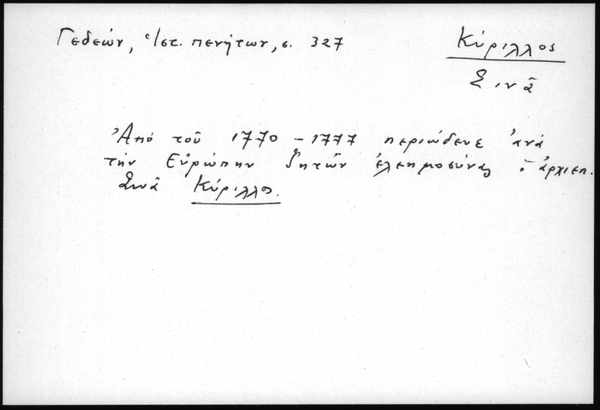 Γεδεών, Ἱστ. πενήτων, σ. 327
Κύριλλος
Σινᾶ
Ἀπό τοῦ 1770 - 1777 περιώδευε ἀνά
τήν Εὐρώπην ζητῶν ἐλεημοσύνας ὁ ἀρχιεπ.
Σινᾶ Κύριλλος.